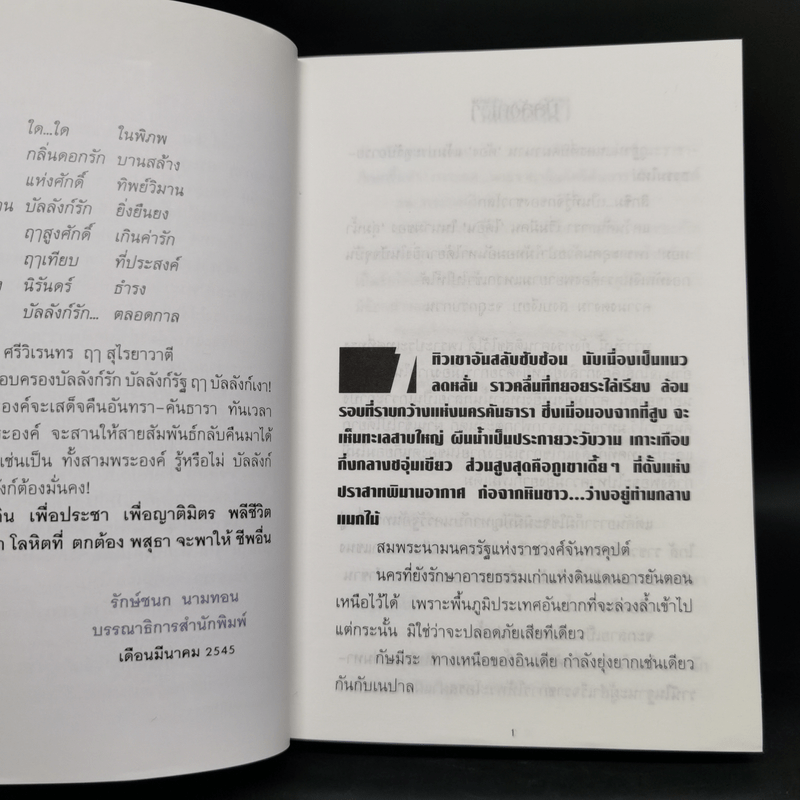 ใด...ใด ในพิภพ
กลิ่นดอกรัก บานสล้าง
แห่งศักดิ์ ทิพย์วิมาน
บัลลังก์รัก ยิ่งยืนยง
ฤๅสูงศักดิ์ เกินค่ารัก
ฤๅเทียบ ที่ประสงค์
นิรันดร์ ธำรง
บัลลังก์รัก... ตลอดกาล
ศรีวิเรนทร ฤๅ สุไรยาวาตี
อบครองบัลลังก์รัก บัลลังก์รัฐ ฤๅ บัลลังก์เงา!
องค์จะเสด็จคืนอันทรา-คันธารา ทันเวลา
ะองค์ จะสานให้สายสัมพันธ์กลับคืนมาได้
เช่นเป็น ทั้งสามพระองค์ รู้หรือไม่ บัลลังก์
งก์ต้องมั่นคง!
ดิน เพื่อประชา เพื่อญาติมิตร พลีชีวิต
า โลหิตที่ ตกต้อง พสุธา จะพาให้ ชีพอื่น
รักษ์ชนก นามทอน
บรรณาธิการสำนักพิมพ์
เดือนมีนาคม 2545
1
ทิวเขาอันสลับซับซ้อน นับเนื่องเป็นแนว
ลดหลั่น ราวคลื่นที่ทยอยระไล่เรียง ล้อม
รอบที่ราบกว้างแห่งนครคันธารา ซึ่งเมื่อมองจากที่สูง จะ
เห็นทะเลสาบใหญ่ ผืนน้ำเป็นประกายวะวับวาม เกาะเกือบ
กึ่งกลางชอุ่มเขียว ส่วนสูงสุดคือภูเขาเตี้ยๆ ที่ตั้งแห่ง
ปราสาทพิมานอากาศ ก่อจากหินขาว...ว่างอยู่ท่ามกลาง
แมกไม้
สมพระนามนครรัฐแห่งราชวงศ์จันทรคุปต์
นครที่ยังรักษาอารยธรรมเก่าแห่งดินแดนอารยันตอน
เหนือไว้ได้ เพราะพื้นภูมิประเทศอันยากที่จะล่วงล้ำเข้าไป
แต่กระนั้น มิใช่ว่าจะปลอดภัยเสียทีเดียว
กัษมีระ ทางเหนือของอินเดีย กำลังยุ่งยากเช่นเดียว
กันกับเนปาล
1